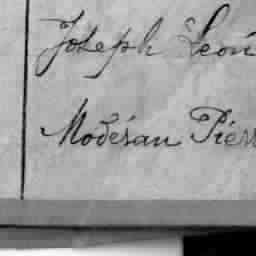 Joseph Léon
Modésan Pierr